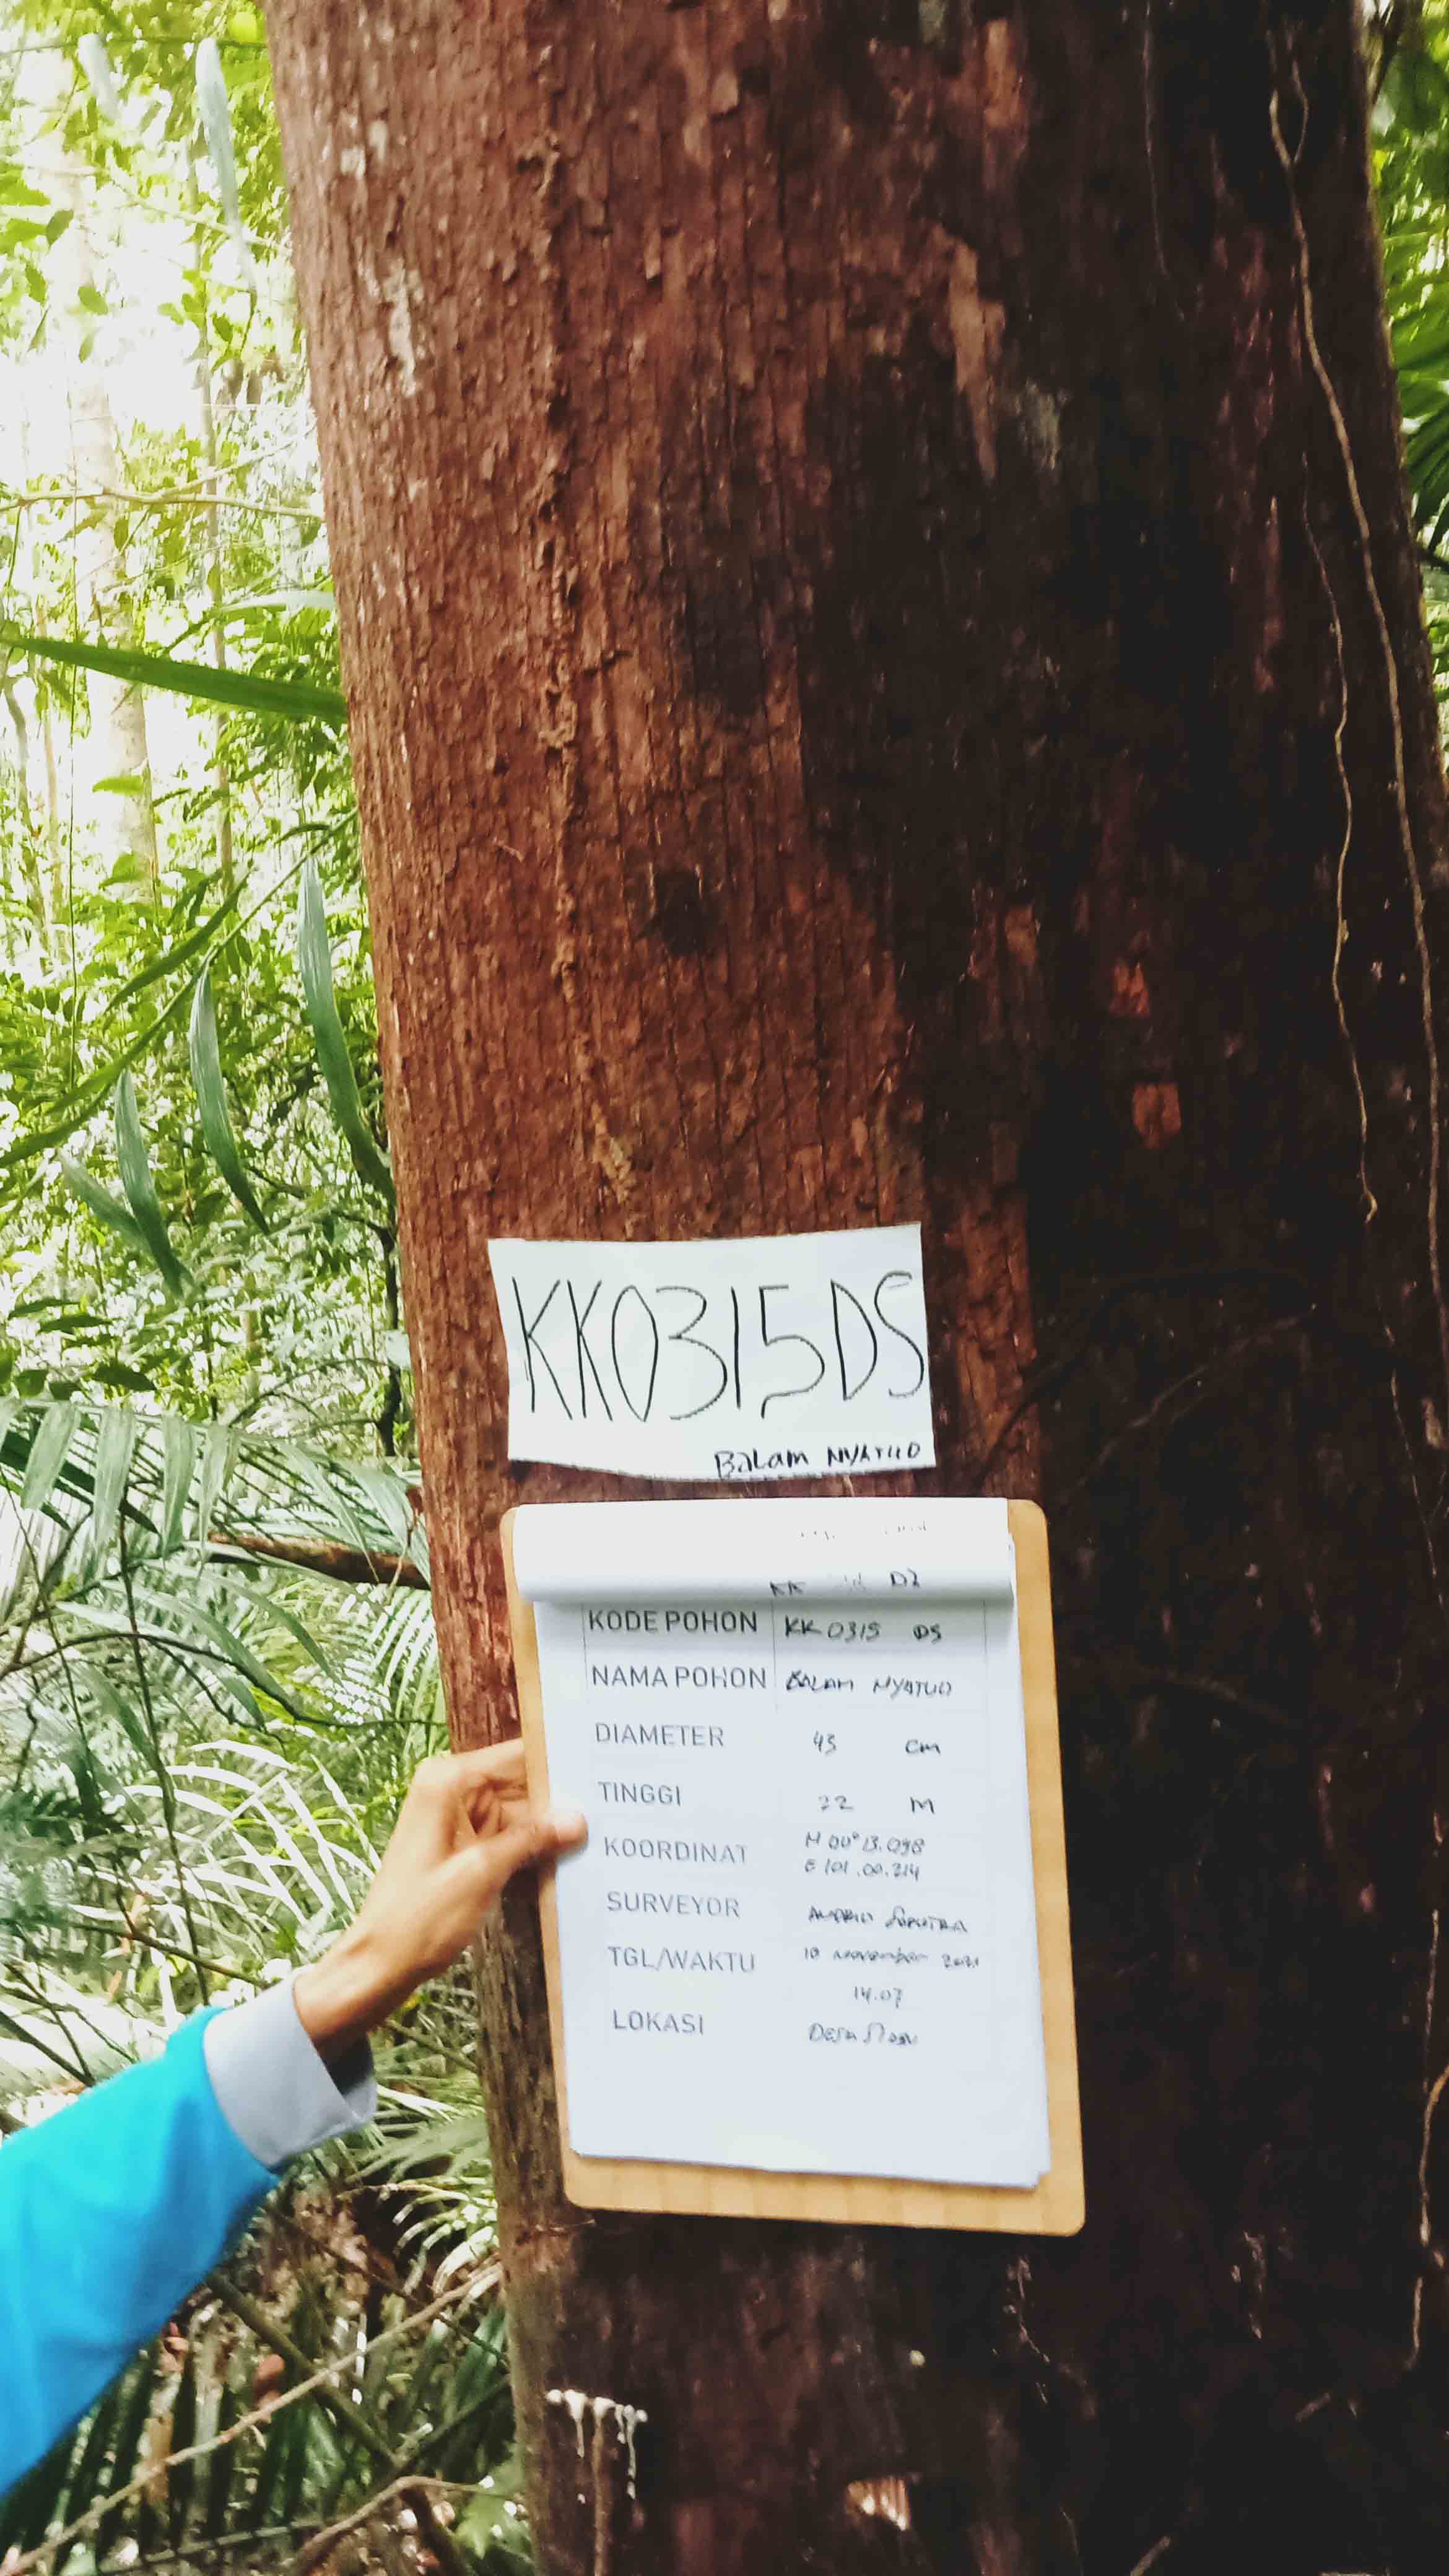 KK0315DS
BaLam NYATUO
KK D2
KODE POHON KK 0315 DS
NAMA POHON BALAM NYATUO
DIAMETER 43 cm
TINGGI 22 M
KOORDINAT N 00° 13.098
E 101.00.214
SURVEYOR
TGL/WAKTU 10 November 2021
14.07
LOKASI Desa